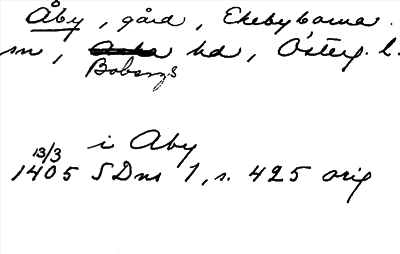 Åby, gård, Ekebyborna
sn, hd, Österg. l.
Bobergs
i Aby
13/3
1405 SDns 1, s. 425 orig